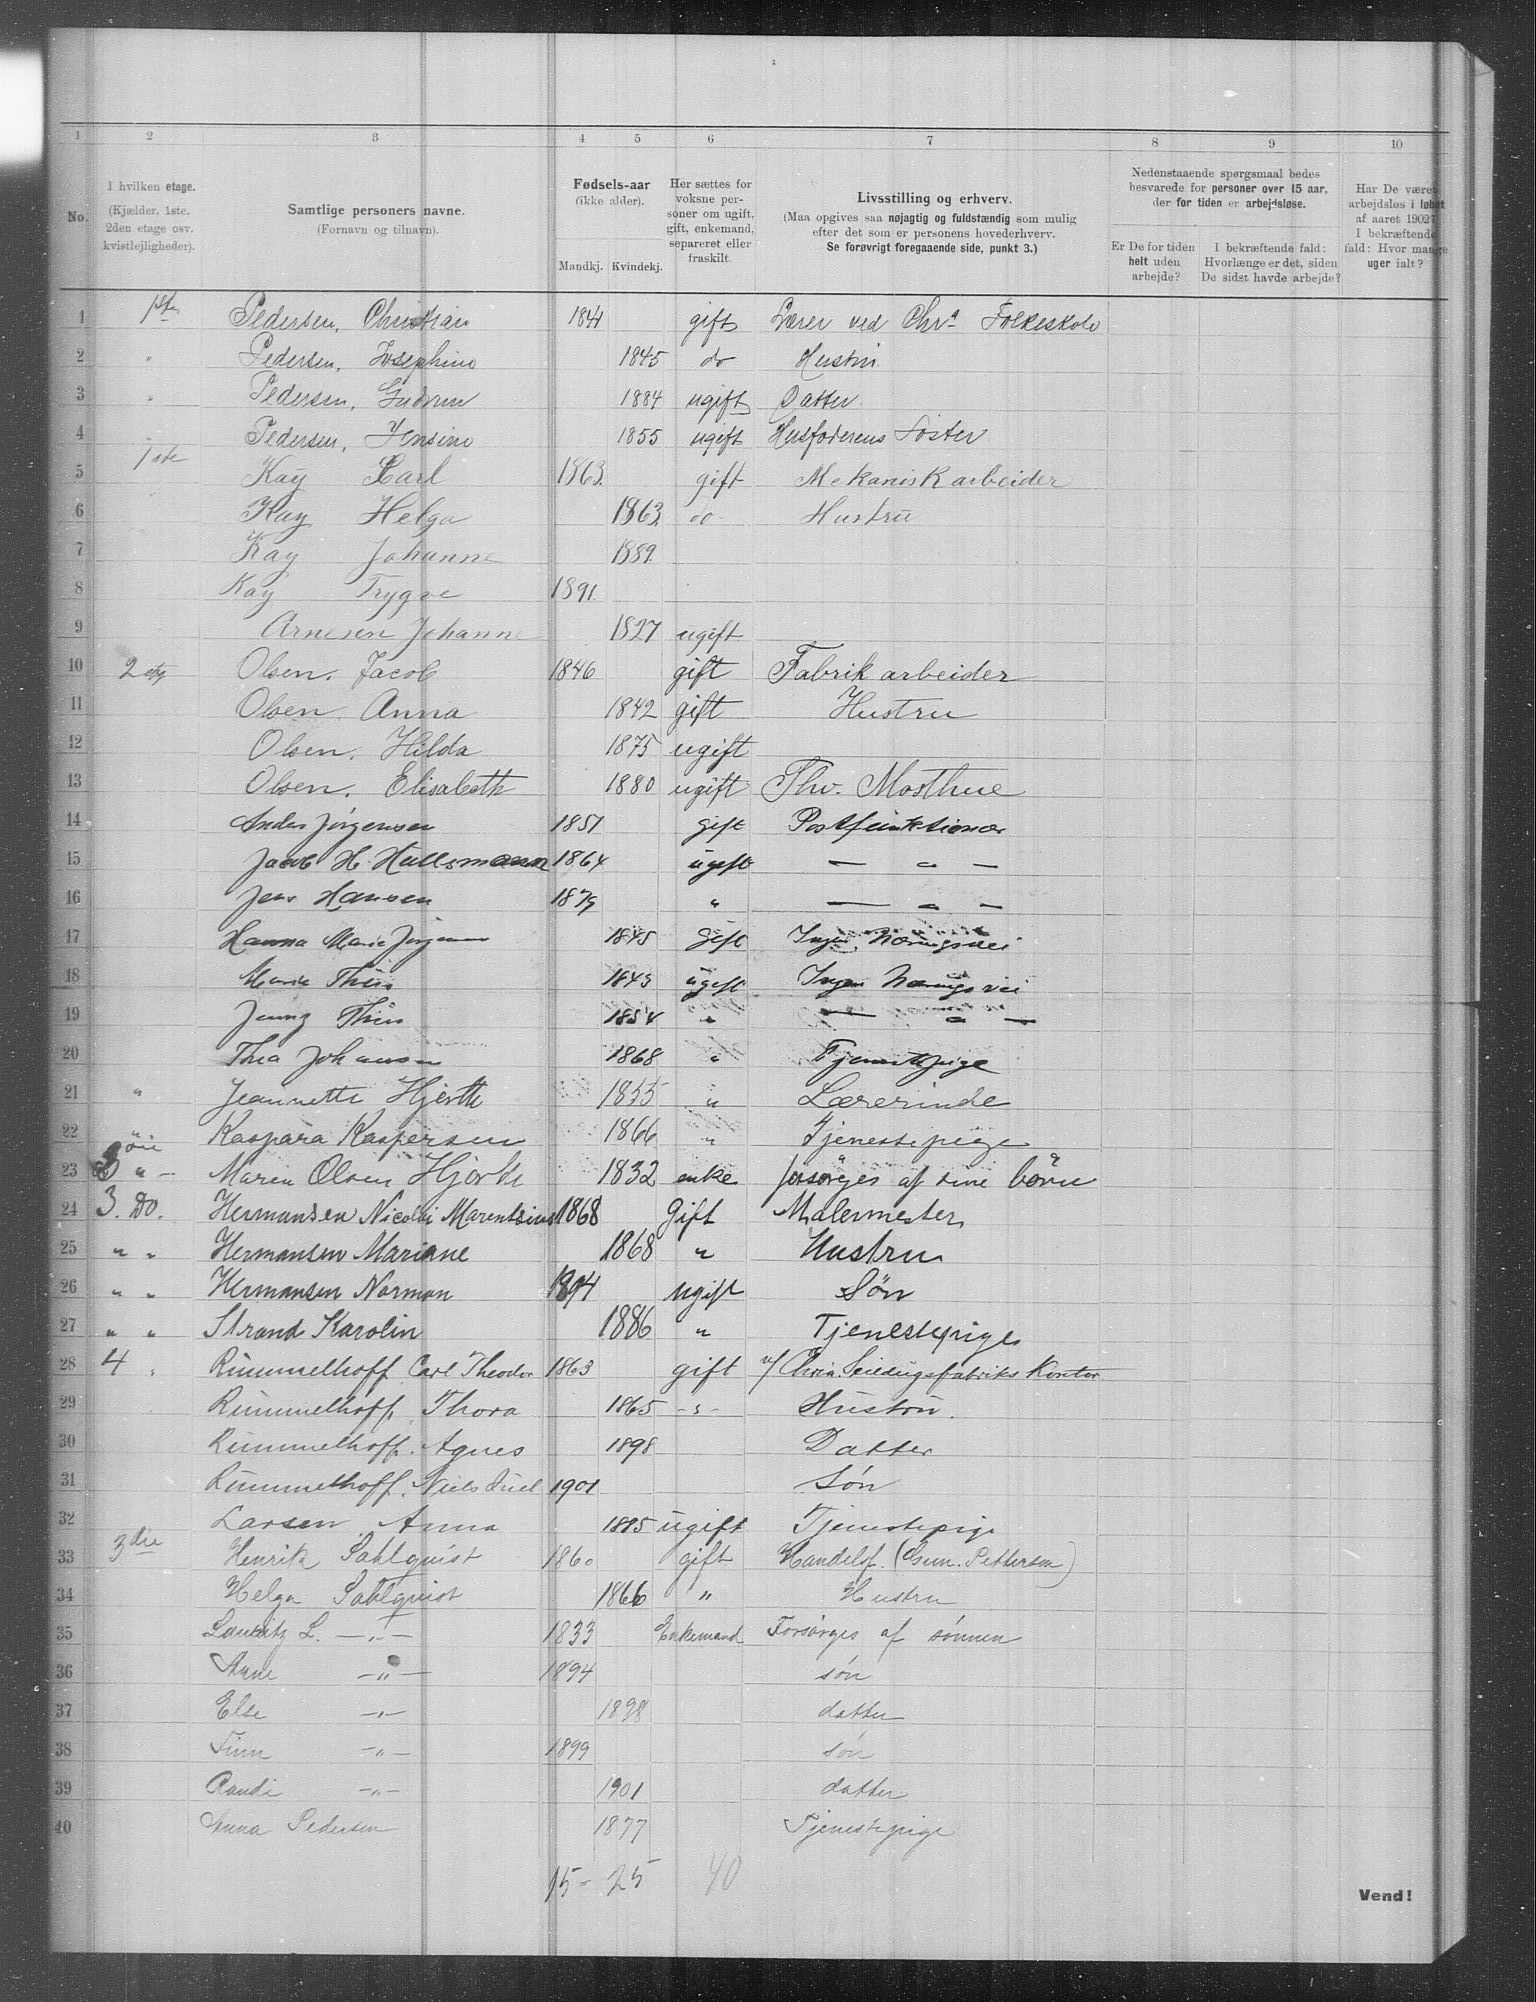 1 2 3 4 5 6 7 8 9 10
No.
I hvilken etage. (Kjælder, 1ste, 2den etage osv. kvistlejligheder).
Samtlige personers navne. (Fornavn og tilnavn).
Fødsels-aar (ikke alder). Mandkj. Kvindekj.
Her sættes for voksne personer om ugift, gift, enkemand, separeret eller fraskilt.
Livsstilling og erhverv. (Maa opgives saa nøjagtig og fuldstændig som mulig efter det som er personens hovederhverv. Se forøvrigt foregaaende side, punkt 3.)
Nedenstaaende spørgsmaal bedes besvarede for personer over 15 aar, der for tiden er arbejdsløse.
Er De for tiden helt uden arbejde?
I bekræftende fald: Hvorlænge er det, siden De sidst havde arbejde?
Har De været arbejdsløs i løbet af aaret 1902? I bekræftende fald: Hvor mange uger ialt?
1 1ste Pedersen, Christian 1841 gift Lærer ved Chra Folkeskole
2 " Pedersen, Josephine 1845 do Hustru
3 " Pedersen, Gudrun 1884 ugift Datter
4 " Pedersen, Jensine 1855 ugift Husfaderens Søster
5 1ste Kay Carl 1863 gift Mekanisk arbeider
6 Kay Helga 1863 do Hustru
7 Kay Johanne 1889
8 Kay Trygve 1891
9 Arnesen Johanne 1827 ugift
10 2 etg Olsen, Jacob 1846 gift Fabrik arbeider
11 Olsen, Anna 1842 gift Hustru
12 Olsen, Hilda 1875 ugift
13 Olsen, Elisabeth 1880 ugift Thv. Mosthue
14 Anders Jørgensen 1851 gift Postfunktionær
15 Jacob H. Hullsmann 1864 ugift — " —
16 Jens Hansen 1879 " — " —
17 Hanna Marie Jørgensen 1845 gift Ingen Næringsvei
18 Marie Thiis 1843 ugift Ingen Næringsvei
19 Jenny Thiis 1854 " — " —
20 Thea Johansen 1868 " Tjenestepige
21 " Jeannette Hjorth 1855 " Lærerinde
22 " Kaspara Kaspersen 1866 " Tjenestepige
23 " — Maren Olsen Hjorth 1832 enke forsørges af sine børn
24 3. Do. Hermansen Nicolai Marentsius 1868 Gift Malermester
25 " " Hermansen Mariane 1868 " Hustru
26 " " Hermansen Norman 1894 ugift Søn
27 " " Strand Karolin 1886 " Tjenestepige
28 4 " Rummelhoff, Carl Theodor 1863 gift v/ Chria. Seildugsfabriks Kontor
29 Rummelhoff, Thora 1865 -"- Hustru.
30 Rummelhoff, Agnes 1898 Datter
31 Rummelhoff, Niels Juel 1901 Søn
32 Larsen Anna 1885 ugift Tjenestepige
33 3die Henrik Dahlquist 1860 gift Handelsf. (Gun. Pettersen)
34 Helga Dahlquist 1866 " Hustru
35 Lauritz L. —"— 1833 Enkemand Forsørges af sønnen
36 Arne —"— 1894 søn
37 Else —"— 1898 datter
38 Finn —"— 1899 søn
39 Randi —"— 1901 datter
40 Anna Pedersen 1877 Tjenestepige
15 - 25 40
Vend!